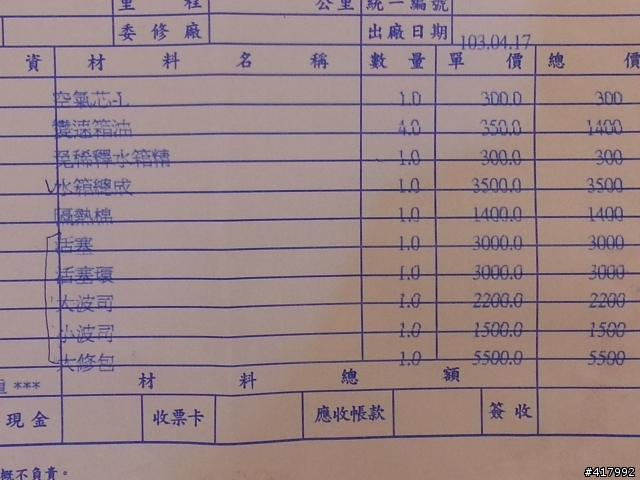 里 程 公里 統一編號
委修廠 出廠日期 103.04.17
資 材 料 名 稱 數 量 單 價 總 價
空氣芯-L 1.0 300.0 300
變速箱油 4.0 350.0 1400
免稀釋水箱精 1.0 300.0 300
水箱總成 1.0 3500.0 3500
隔熱棉 1.0 1400.0 1400
活塞 1.0 3000.0 3000
活塞環 1.0 3000.0 3000
大波司 1.0 2200.0 2200
小波司 1.0 1500.0 1500
大修包 1.0 5500.0 5500
*** 材 料 總 額
現金 收票卡 應收帳款 簽收
概不負責。
#417992